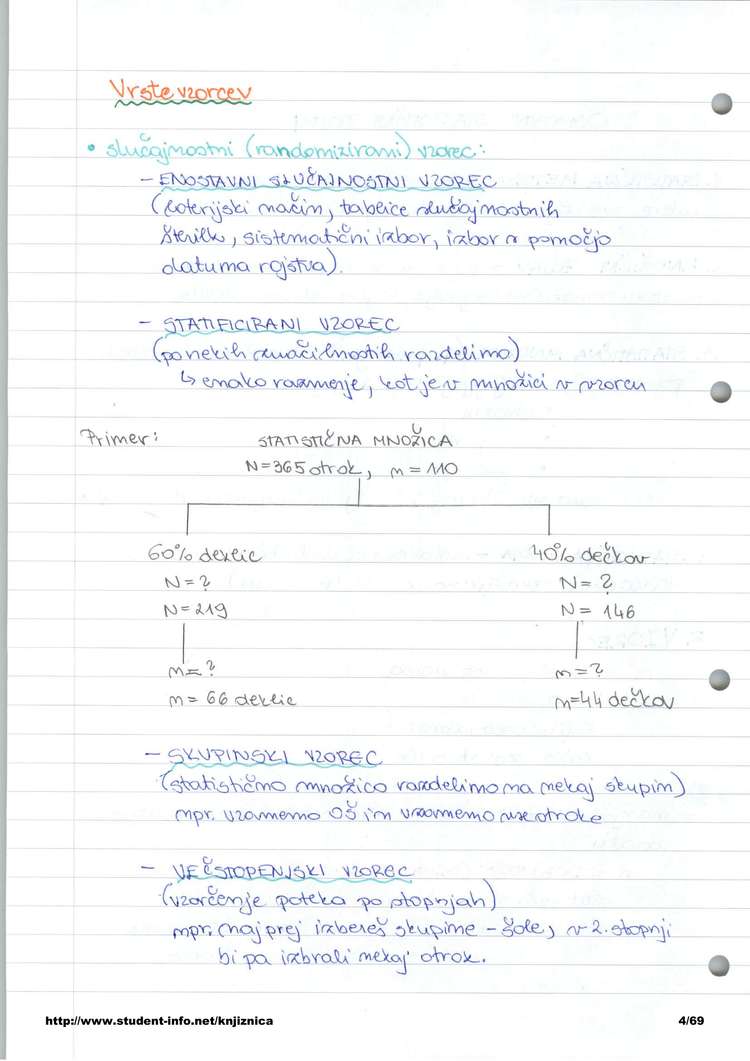 Vrste vzorcev
• slučajnostni (randomizirani) vzorec:
- ENOSTAVNI SLUČAJNOSTNI VZOREC
(loterijski način, tablice slučajnostnih
številk, sistematični izbor, izbor s pomočjo
datuma rojstva).
- STATIFICIRANI VZOREC
(po nekih značilnostih razdelimo)
↳ enako razmerje, kot je v množici v vzorcu
Primer: STATISTIČNA MNOŽICA
N=365 otrok, n=110
60% deklic 40% dečkov
N=? N=?
N=219 N=146
n=? n=?
n=66 deklic n=44 dečkov
- SKUPINSKI VZOREC
(statistično množico razdelimo na nekaj skupin)
npr. vzamemo OŠ in vzamemo vse otroke
- VEČSTOPENJSKI VZOREC
(vzorčenje poteka po stopnjah)
npr. (najprej izbereš skupine - šole, v 2. stopnji
bi pa izbrali nekaj otrok.
http://www.student-info.net/knjiznica 4/69